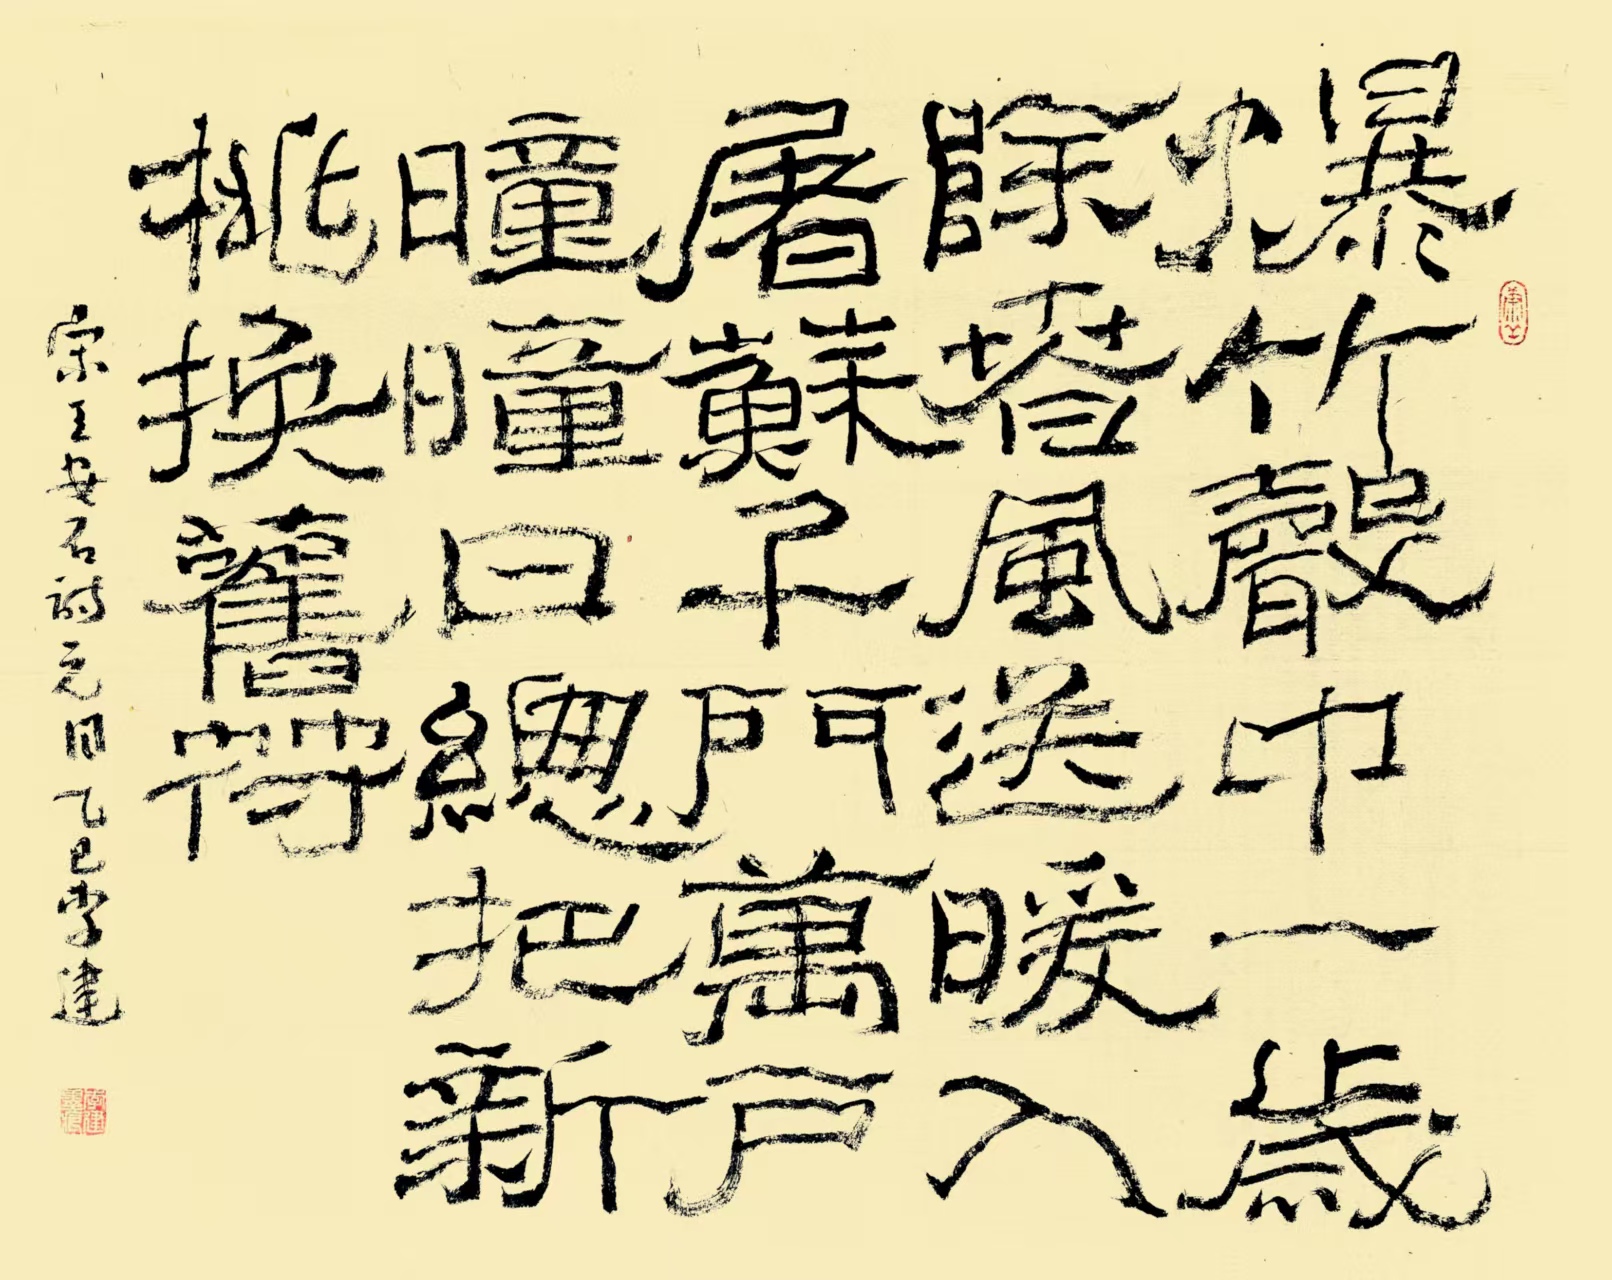 爆竹聲中一歲
除春風送暖入
屠蘇千門萬戶
曈曈日總把新
桃換舊符
宋王安石詩元日乙巳李建